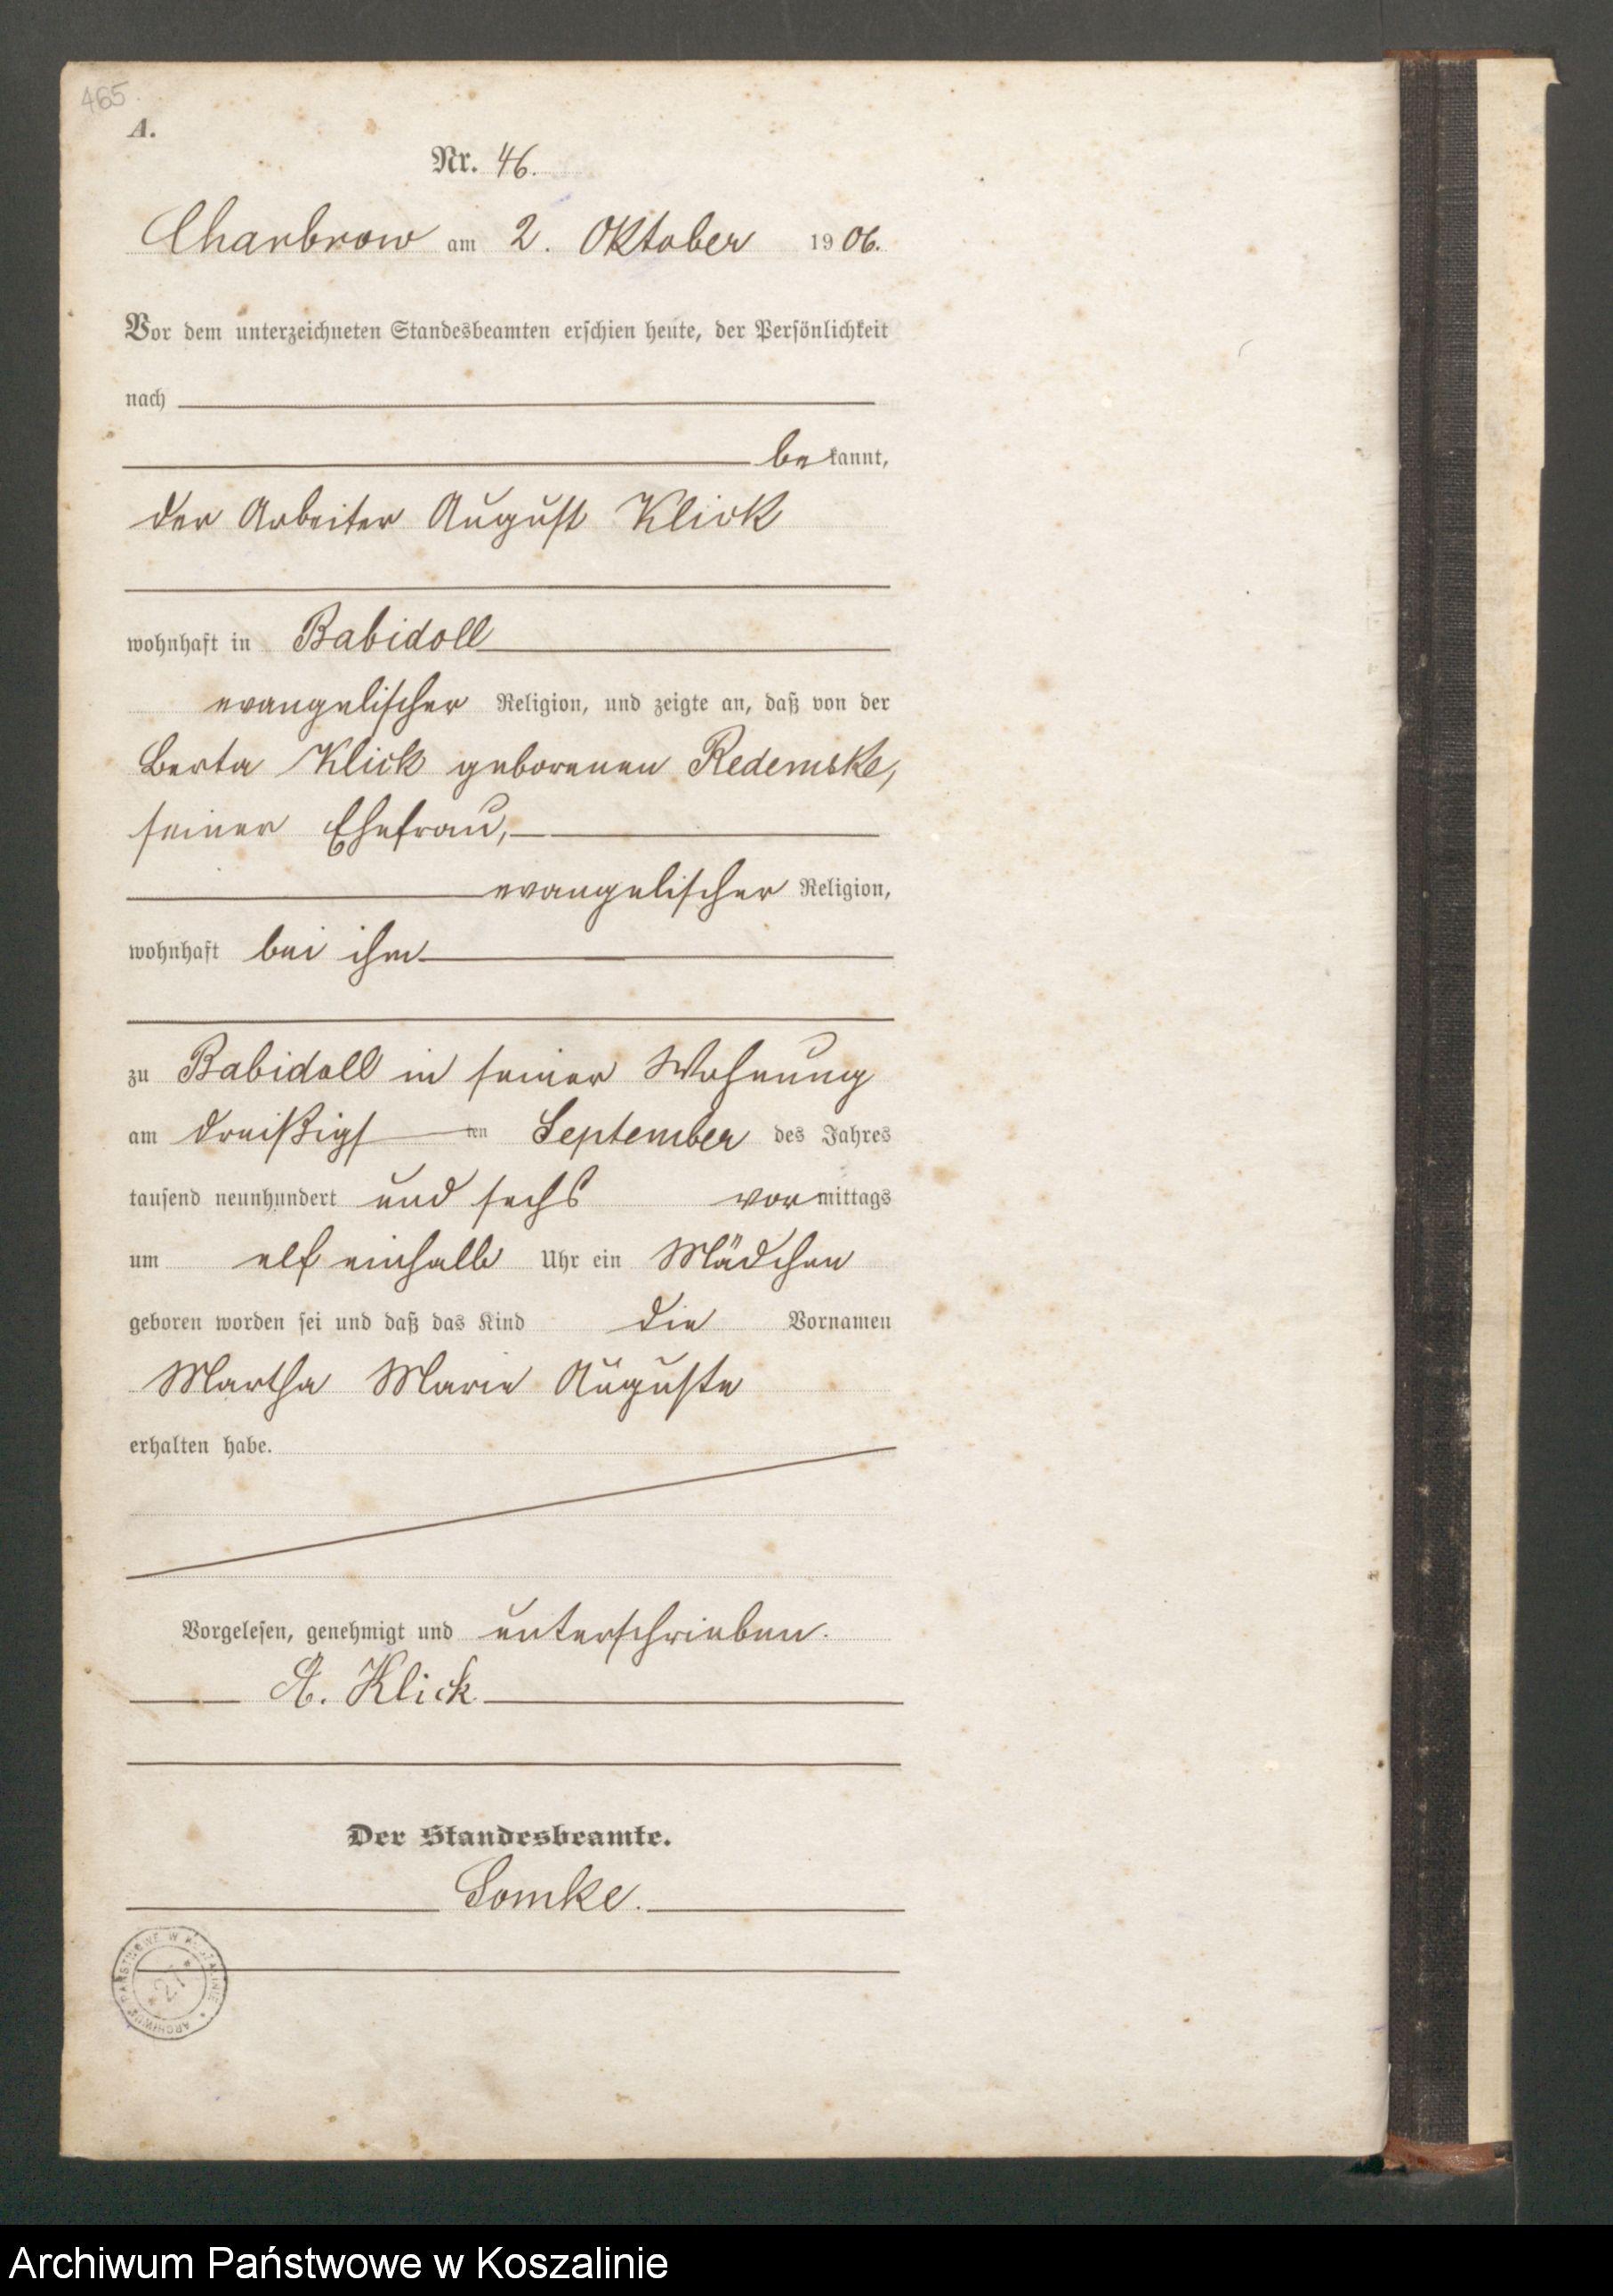 465
A.
Nr. 46.
Charbrow am 2. Oktober 1906.
Vor dem unterzeichneten Standesbeamten erschien heute, der Persönlichkeit
nach
bekannt,
der Arbeiter August Klick
wohnhaft in Babidoll
evangelischer Religion, und zeigte an, daß von der
Berta Klick geborenen Redemske,
seiner Ehefrau,
evangelischer Religion,
wohnhaft bei ihm
zu Babidoll in seiner Wohnung
am dreißigsten September des Jahres
tausend neunhundert und sechs vormittags
um elf einhalb Uhr ein Mädchen
geboren worden sei und daß das Kind die Vornamen
Martha Marie Auguste
erhalten habe.
Vorgelesen, genehmigt und unterschrieben.
A. Klick
Der Standesbeamte.
Somke.
ARCHIWUM PAŃSTWOWE W KOSZALINIE
27
Archiwum Państwowe w Koszalinie